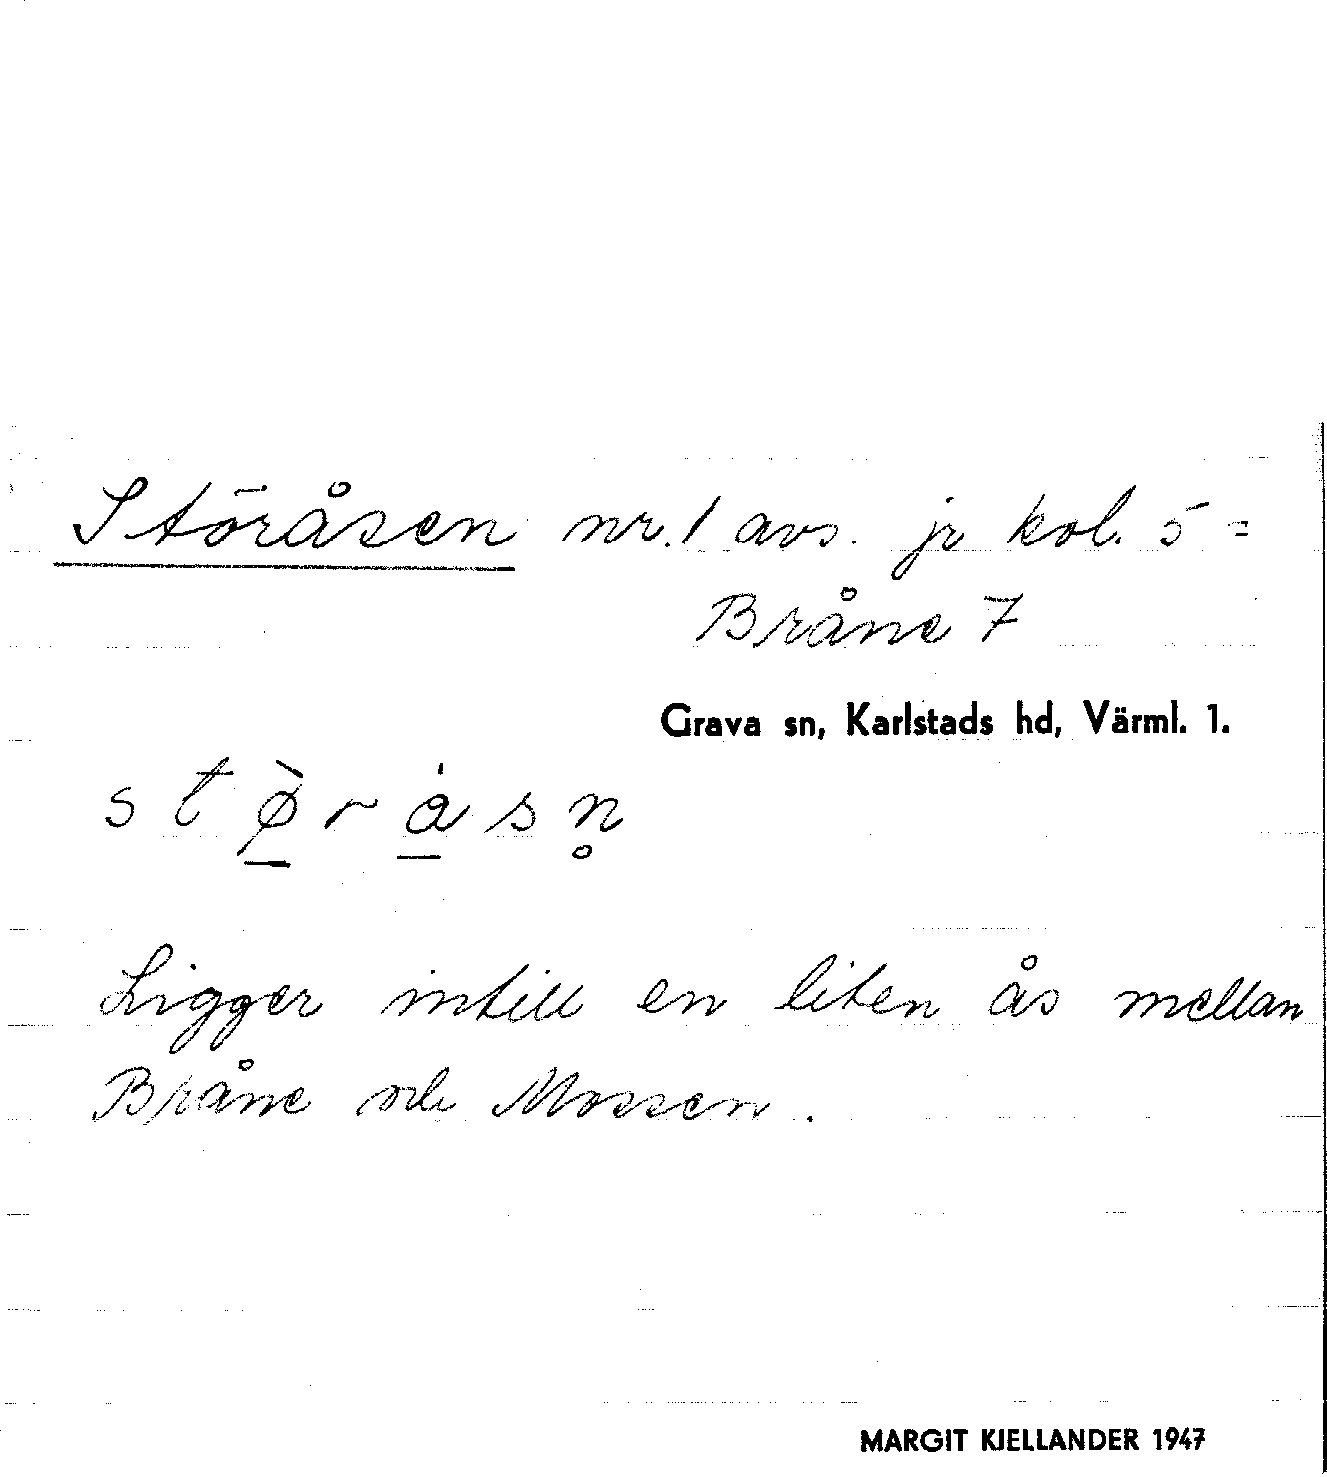 Störåsen nr. 1 avs. jr kol. 5 =
Bråne 7
Grava sn, Karlstads hd, Värml. 1.
Ligger intill en liten ås mellan
Bråne och Mossen.
MARGIT KJELLANDER 1947